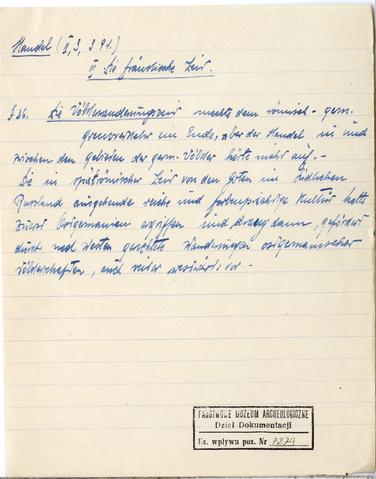 Handel (II, 3, 391.)
II Die fränkische Zeit.
§ 36. Die Völkerwanderungszeit machte dem römisch-germ.
grenzverkehr ein Ende, aber der Handel in und
zwischen den gebieten der germ. Völker hörte nicht auf.-
Die in spätrömischer Zeit von den Goten im südlichen
Russland ausgehende reiche und farbenprächtige Kultur hatte
zuerst Ostgermanien ergriffen und drang dann, gefördert
durch nach Westen gerichtete Wanderungen ostgermanischer
Völkerschaften, auch weiter westwärts vor.-
PAŃSTWOWE MUZEUM ARCHEOLOGICZNE
Dział Dokumentacji
Ks. wpływu poz. Nr 7279